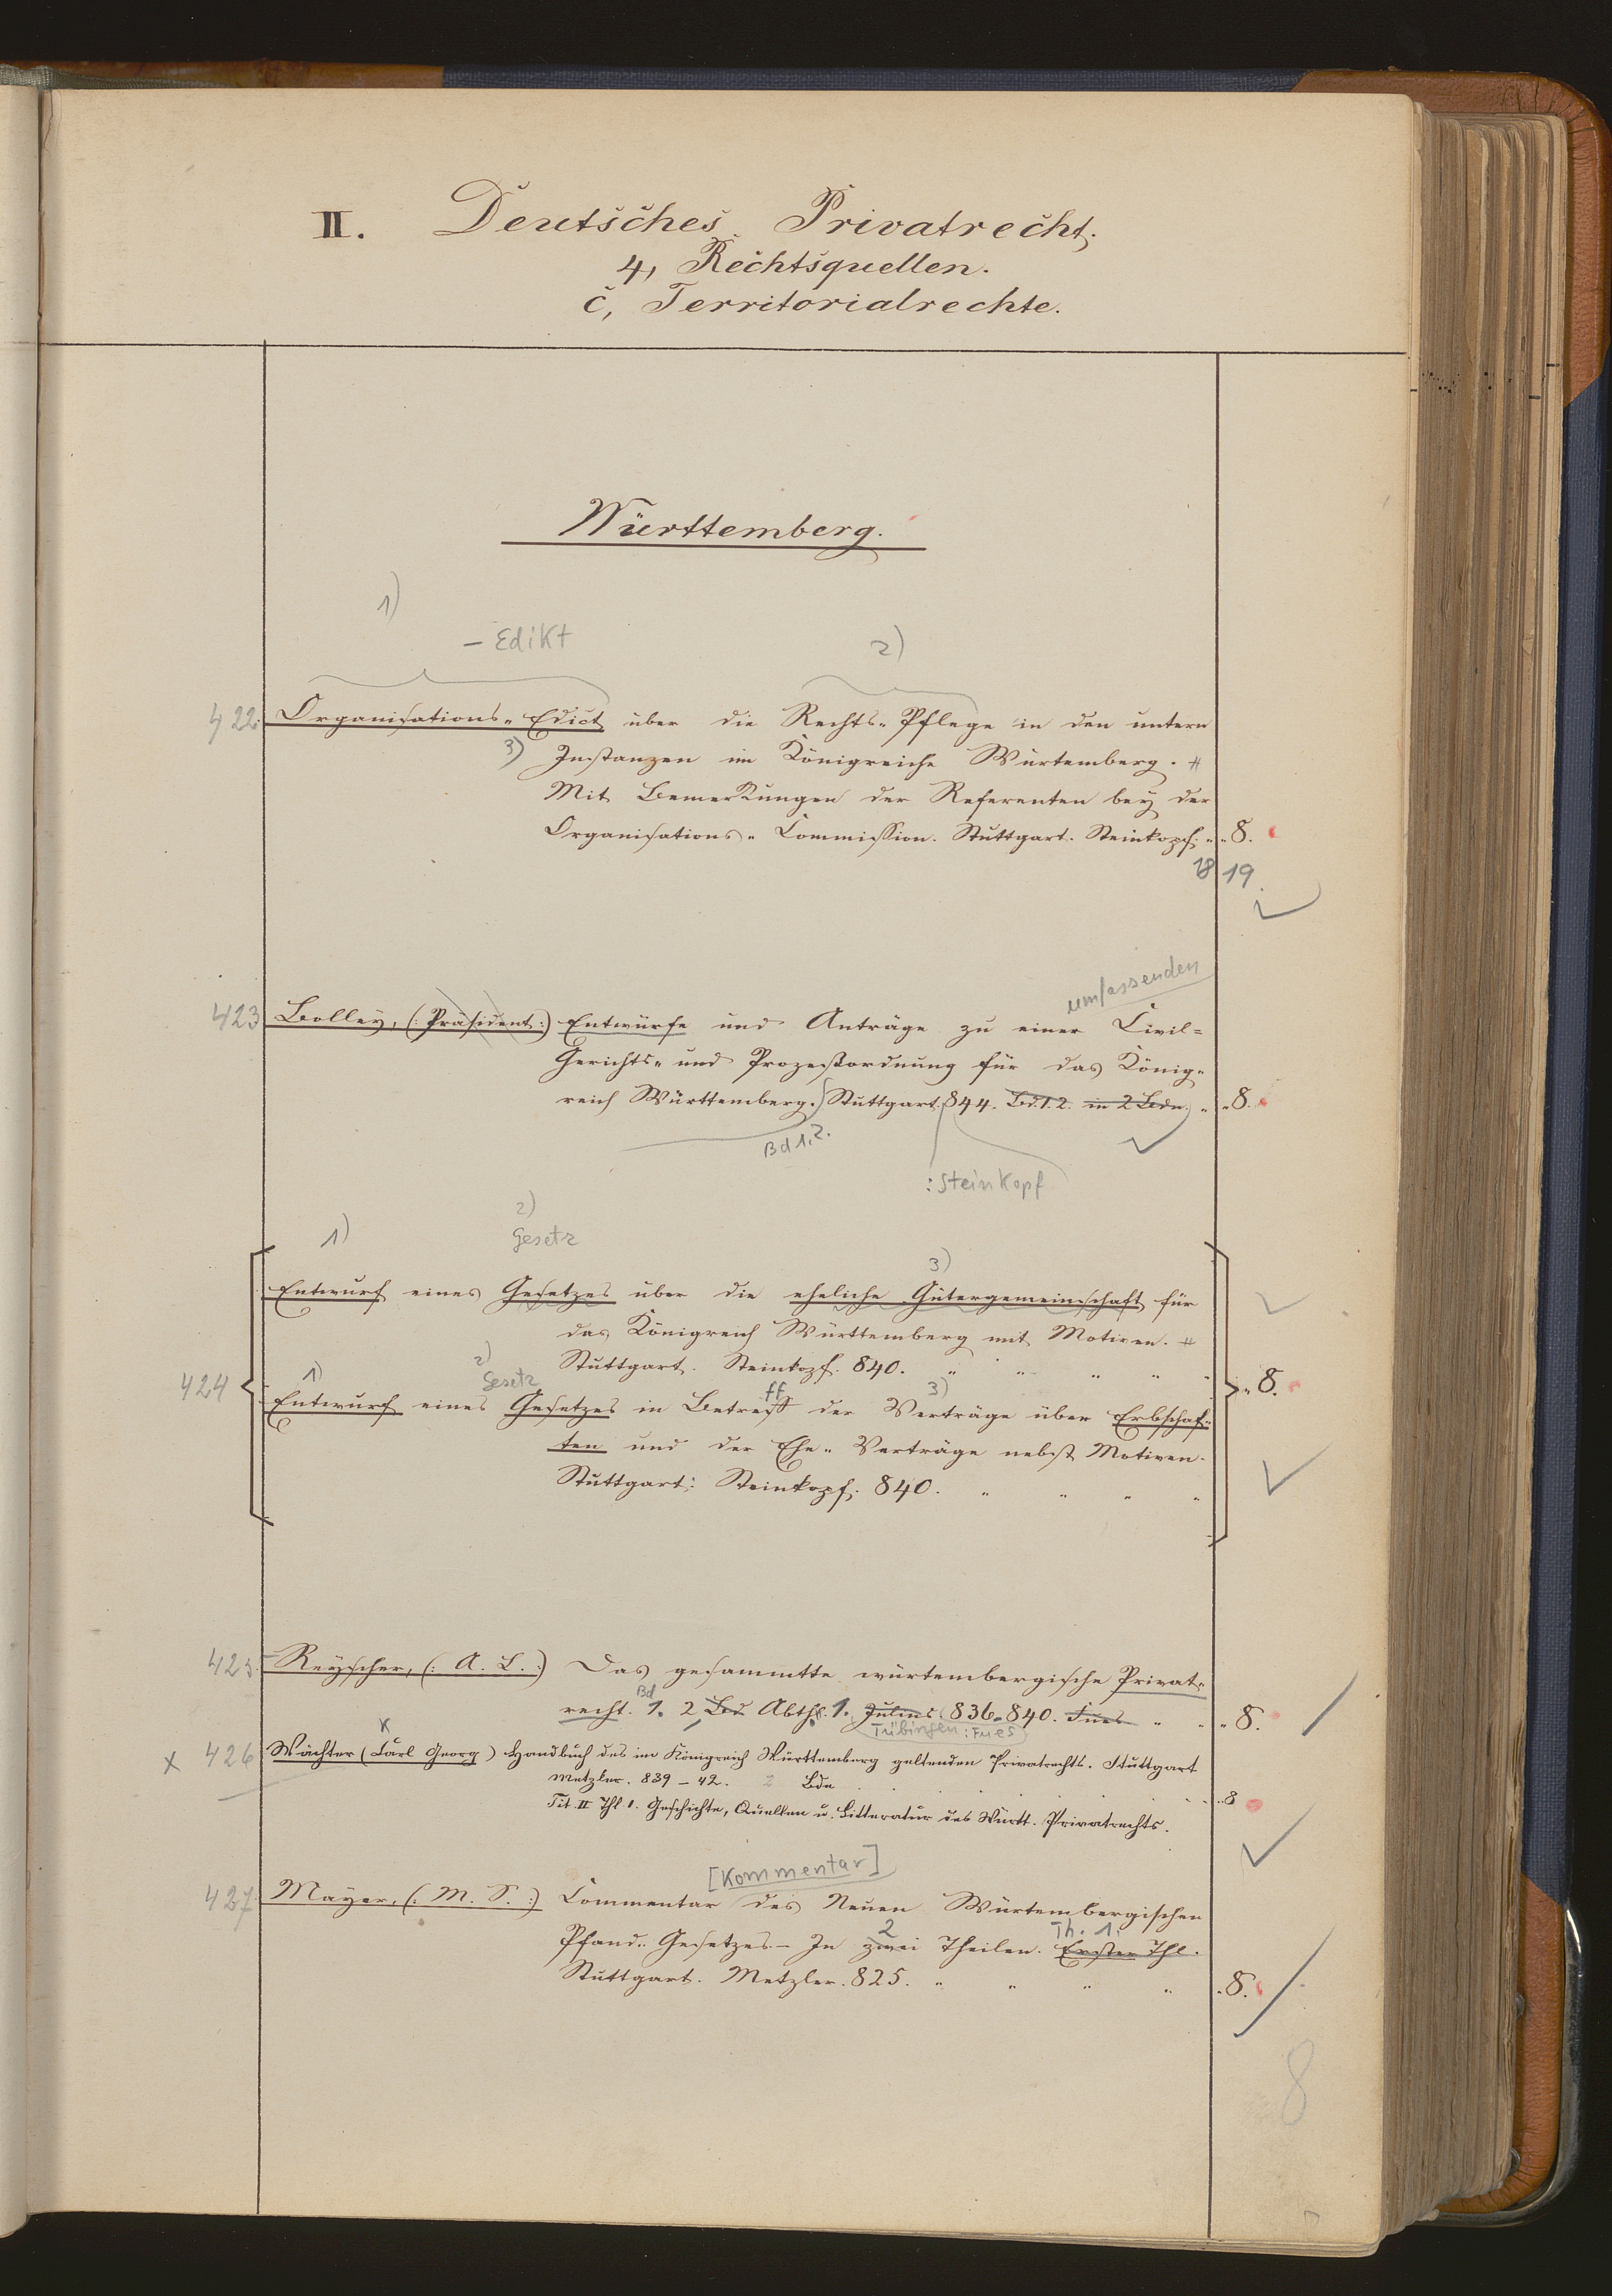 II. Deutsches Privatrecht.
4, Rechtsquellen.
c, Territorialrechte.
Württemberg.
1)
- Edikt
2)
422. Organisations-Edict über die Rechts-Pflege in den untern
3) Instanzen im Königreiche Würtemberg. #
Mit Bemerkungen der Referenten bey der
Organisations-Commission. Stuttgart. Steinkopf. " " 8.
18 19.
umfassenden
423 Bolley, (: Präsident :) Entwürfe und Anträge zu einer Civil-
Gerichts- und Prozeßordnung für das König-
reich Württemberg. Stuttgart. 844. Bd. 1. 2. in 2 Bdn. " " 8.
Bd 1.2.
: Steinkopf
2)
1) Gesetz
3)
Entwurf eines Gesetzes über die eheliche Gütergemeinschaft für
das Königreich Württemberg mit Motiven. #
Stuttgart. Steinkopf. 840. " " " " "
424 " 8.
1) 2) Gesetz ff 3)
Entwurf eines Gesetzes in Betreff der Verträge über Erbschaf-
ten und der Ehe-Verträge nebst Motiven.
Stuttgart: Steinkopf. 840. " " " "
425 Reyscher, (: A. L. :) Das gesammtte würtembergische Privat-
Bd
recht. 1. 2 Bd Abthl. 1. Julius. 836-840. Fues " " " 8.
Tübingen: Fues
K
x 426 Wächter (Carl Georg) Handbuch des im Königreich Württemberg geltenden Privatrechts. Stuttgart
Metzler. 839-42. 2 Bde . . . . . . " 8
Tit. II Thl 1. Geschichte, Quellen u. Litteratur des Württ. Privatrechts.
[Kommentar]
427 Mayer, (: M. S. :) Commentar des Neuen Würtembergischen
2 Th. 1.
Pfand-Gesetzes - In zwei Theilen. Erster Thl.
Stuttgart. Metzler. 825. " " " " . 8.
8